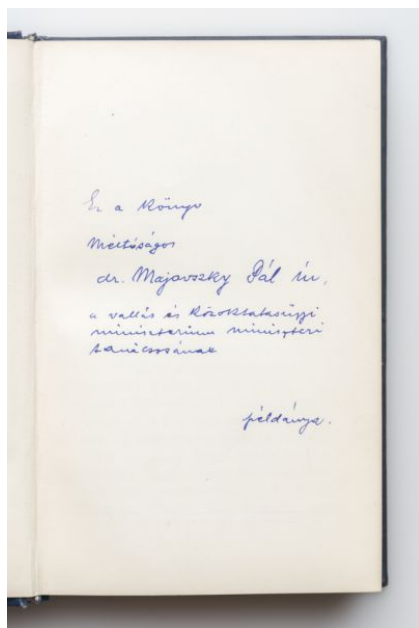 Ez a könyv
Méltóságos
dr. Majovszky Pál úr,
a vallás és közoktatásügyi
ministerium ministeri
tanácsosának
példánya.